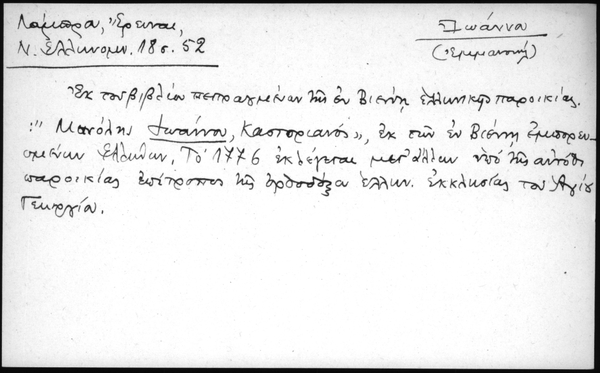 Λάμπρου, Ἔρευναι,
Ν. Ἑλληνομν. 18 σ. 52
Ἰωάννου
(Ἐμμανουήλ)
Ἐκ του βιβλίου πεπραγμένων τῆς ἐν Βιέννῃ ἑλληνικῆς παροικίας.
:" Μανόλης Ἰωάννου, Καστοριανός", ἐκ τῶν ἐν Βιέννῃ ἐμπορευ-
ομένων Ἑλλήνων. Τὸ 1776 ἐκλέγεται μετ' ἄλλων ὑπὸ τῆς αὐτόθι
παροικίας ἐπίτροπος τῆς ὀρθοδόξου ἑλλην. ἐκκλησίας του Ἁγίου
Γεωργίου.